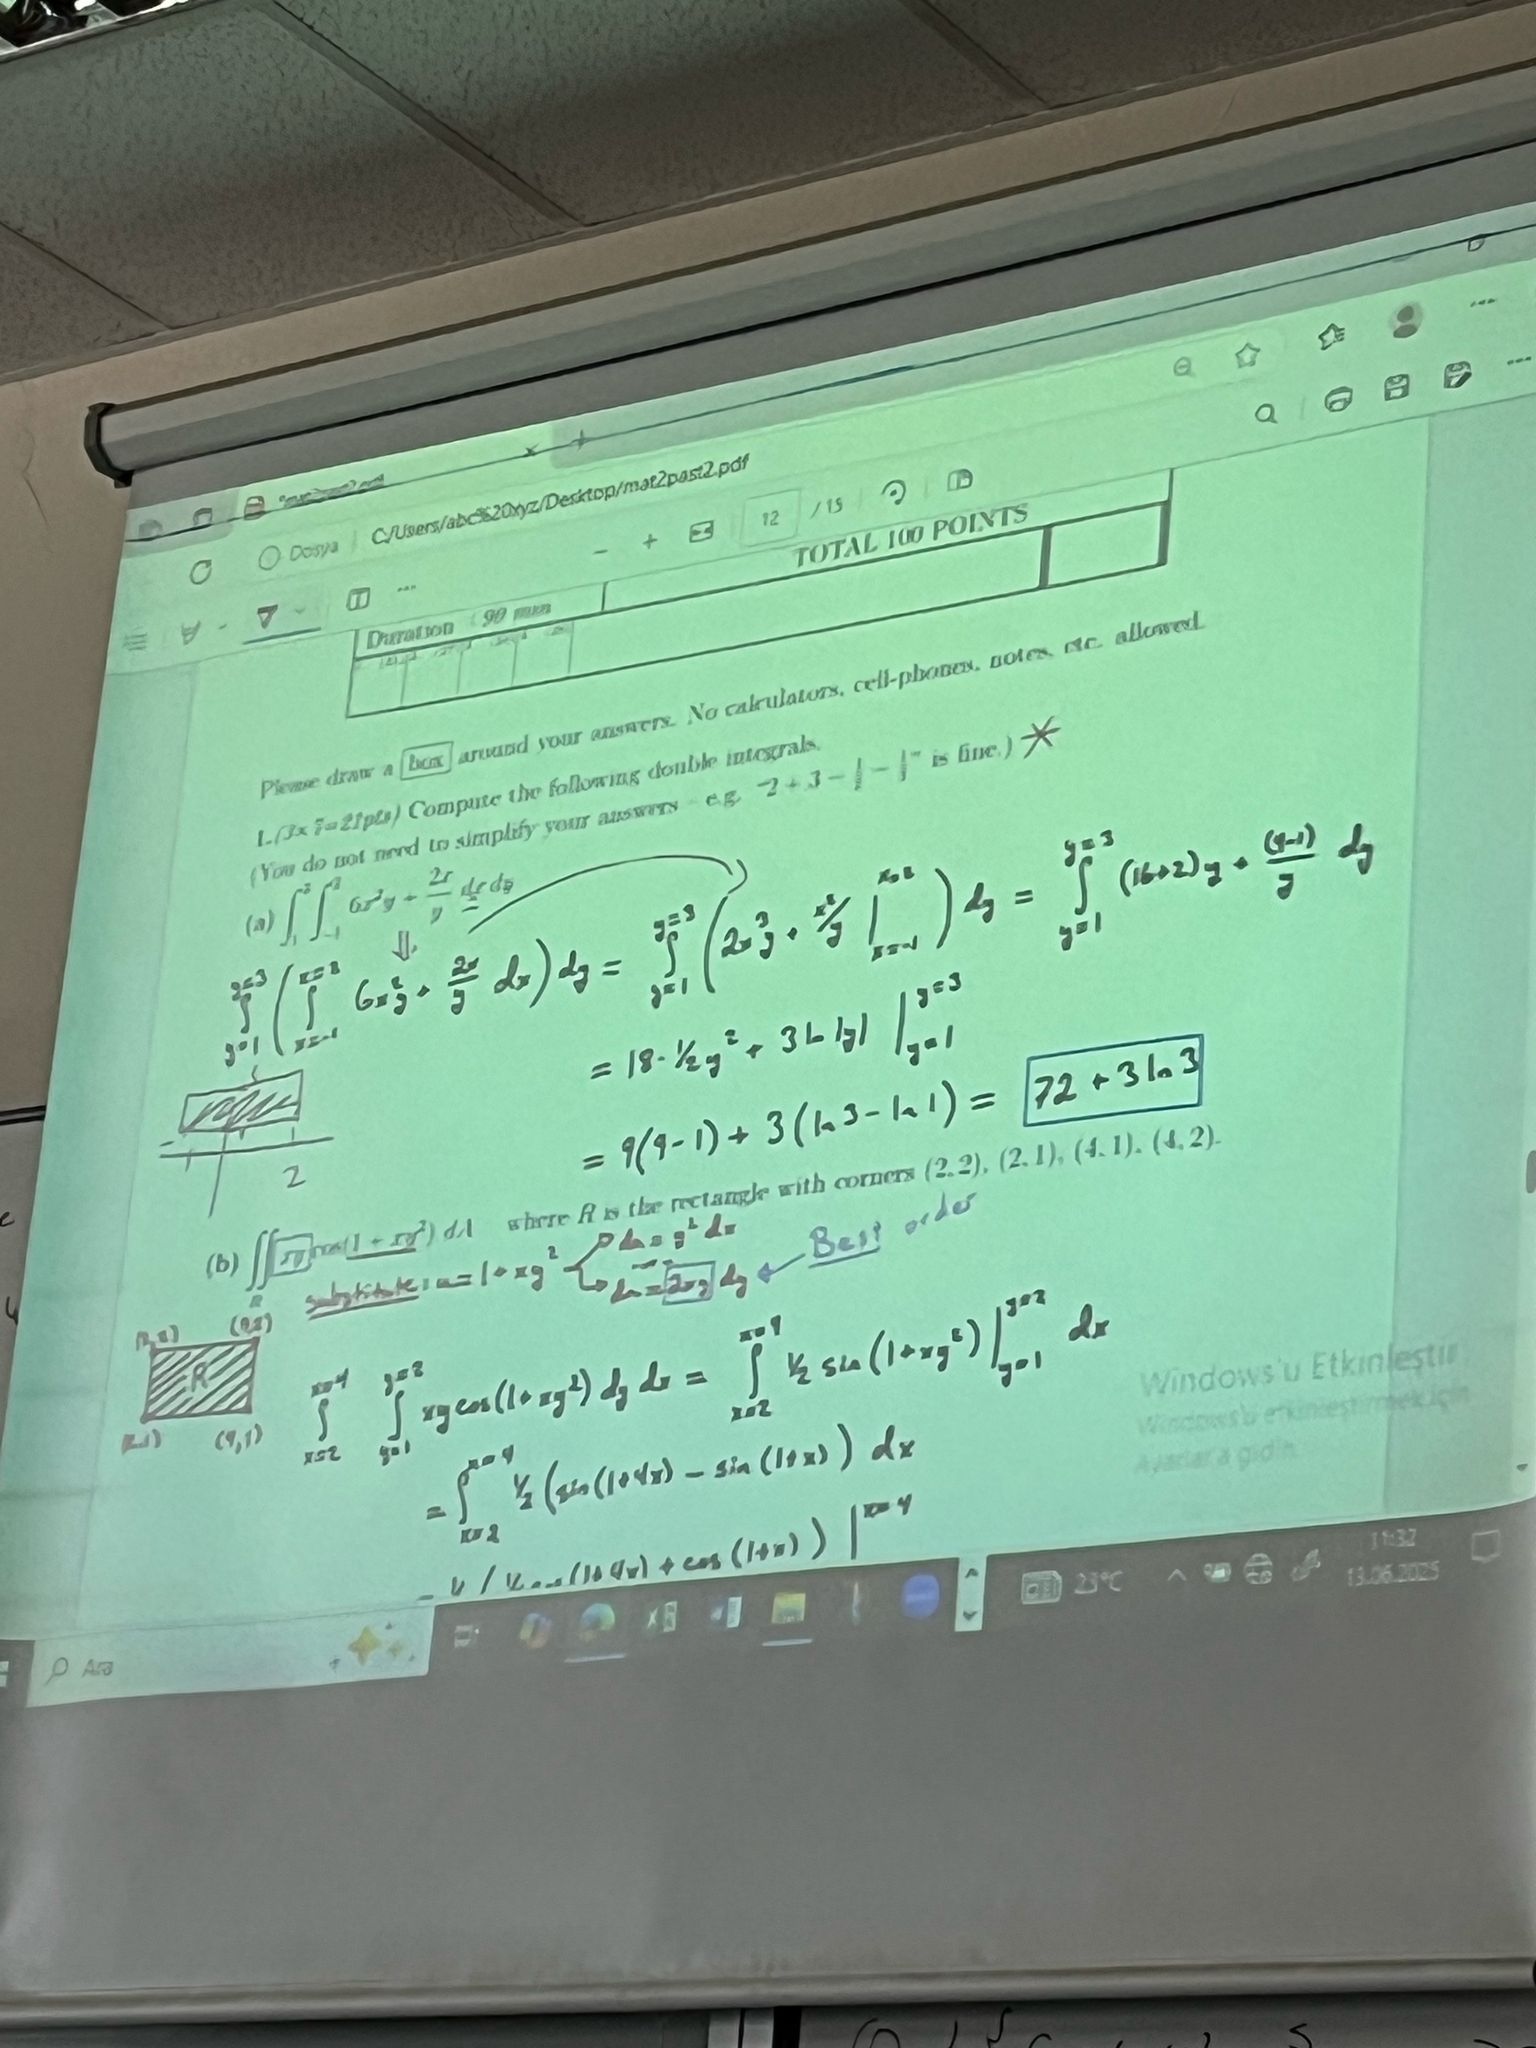 C:/Users/abc%20xyz/Desktop/mat2past2.pdf
Dosya
12 / 15
TOTAL 100 POINTS
Duration 90 min
Please draw a box around your answers. No calculators, cell-phones, notes, etc. allowed.
1. (3×7=21pts) Compute the following double integrals.
(You do not need to simplify your answers – e.g.
is fine.) *
(a) ∫ ∫ 6x²y + 2x/y dx dy
⇓
∫_{y=1}^{y=3} ( ∫_{x=-1}^{x=2} 6x²y + 2x/y dx ) dy = ∫_{y=1}^{y=3} ( 2x³y + x²/y |_{x=-1}^{x=2} ) dy = ∫_{y=1}^{y=3} (16+2)y + (4-1)/y dy
= 18·½y² + 3 ln |y| |_{y=1}^{y=3}
= 9(9-1) + 3(ln 3 - ln 1) = 72 + 3 ln 3
2
(b) ∬_R xy cos(1 + xy²) dA where R is the rectangle with corners (2, 2), (2, 1), (4, 1), (4, 2).
substitute: u = 1 + xy²
du = y² dx
du = 2xy dy
Best order
(4,2)
R
(4,1)
∫_{x=2}^{x=4} ∫_{y=1}^{y=2} xy cos(1+xy²) dy dx = ∫_{x=2}^{x=4} ½ sin(1+xy²) |_{y=1}^{y=2} dx
= ∫_{x=2}^{x=4} ½ (sin(1+4x) - sin(1+x)) dx
(1+4x) + cos(1+x)) |^{x=4}
Windows'u Etkinleştir
Windows'u etkinleştirmek için
Ayarlar'a gidin.
Ara
23°C
11:32
13.06.2025